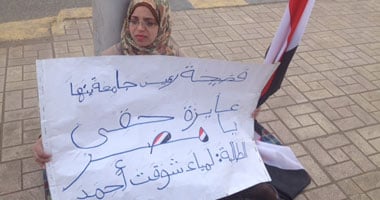 فضيحة رئيس جامعة بنها
عايزة حقى
يا
مصر
الطالبة: لمياء شوقت أحمد